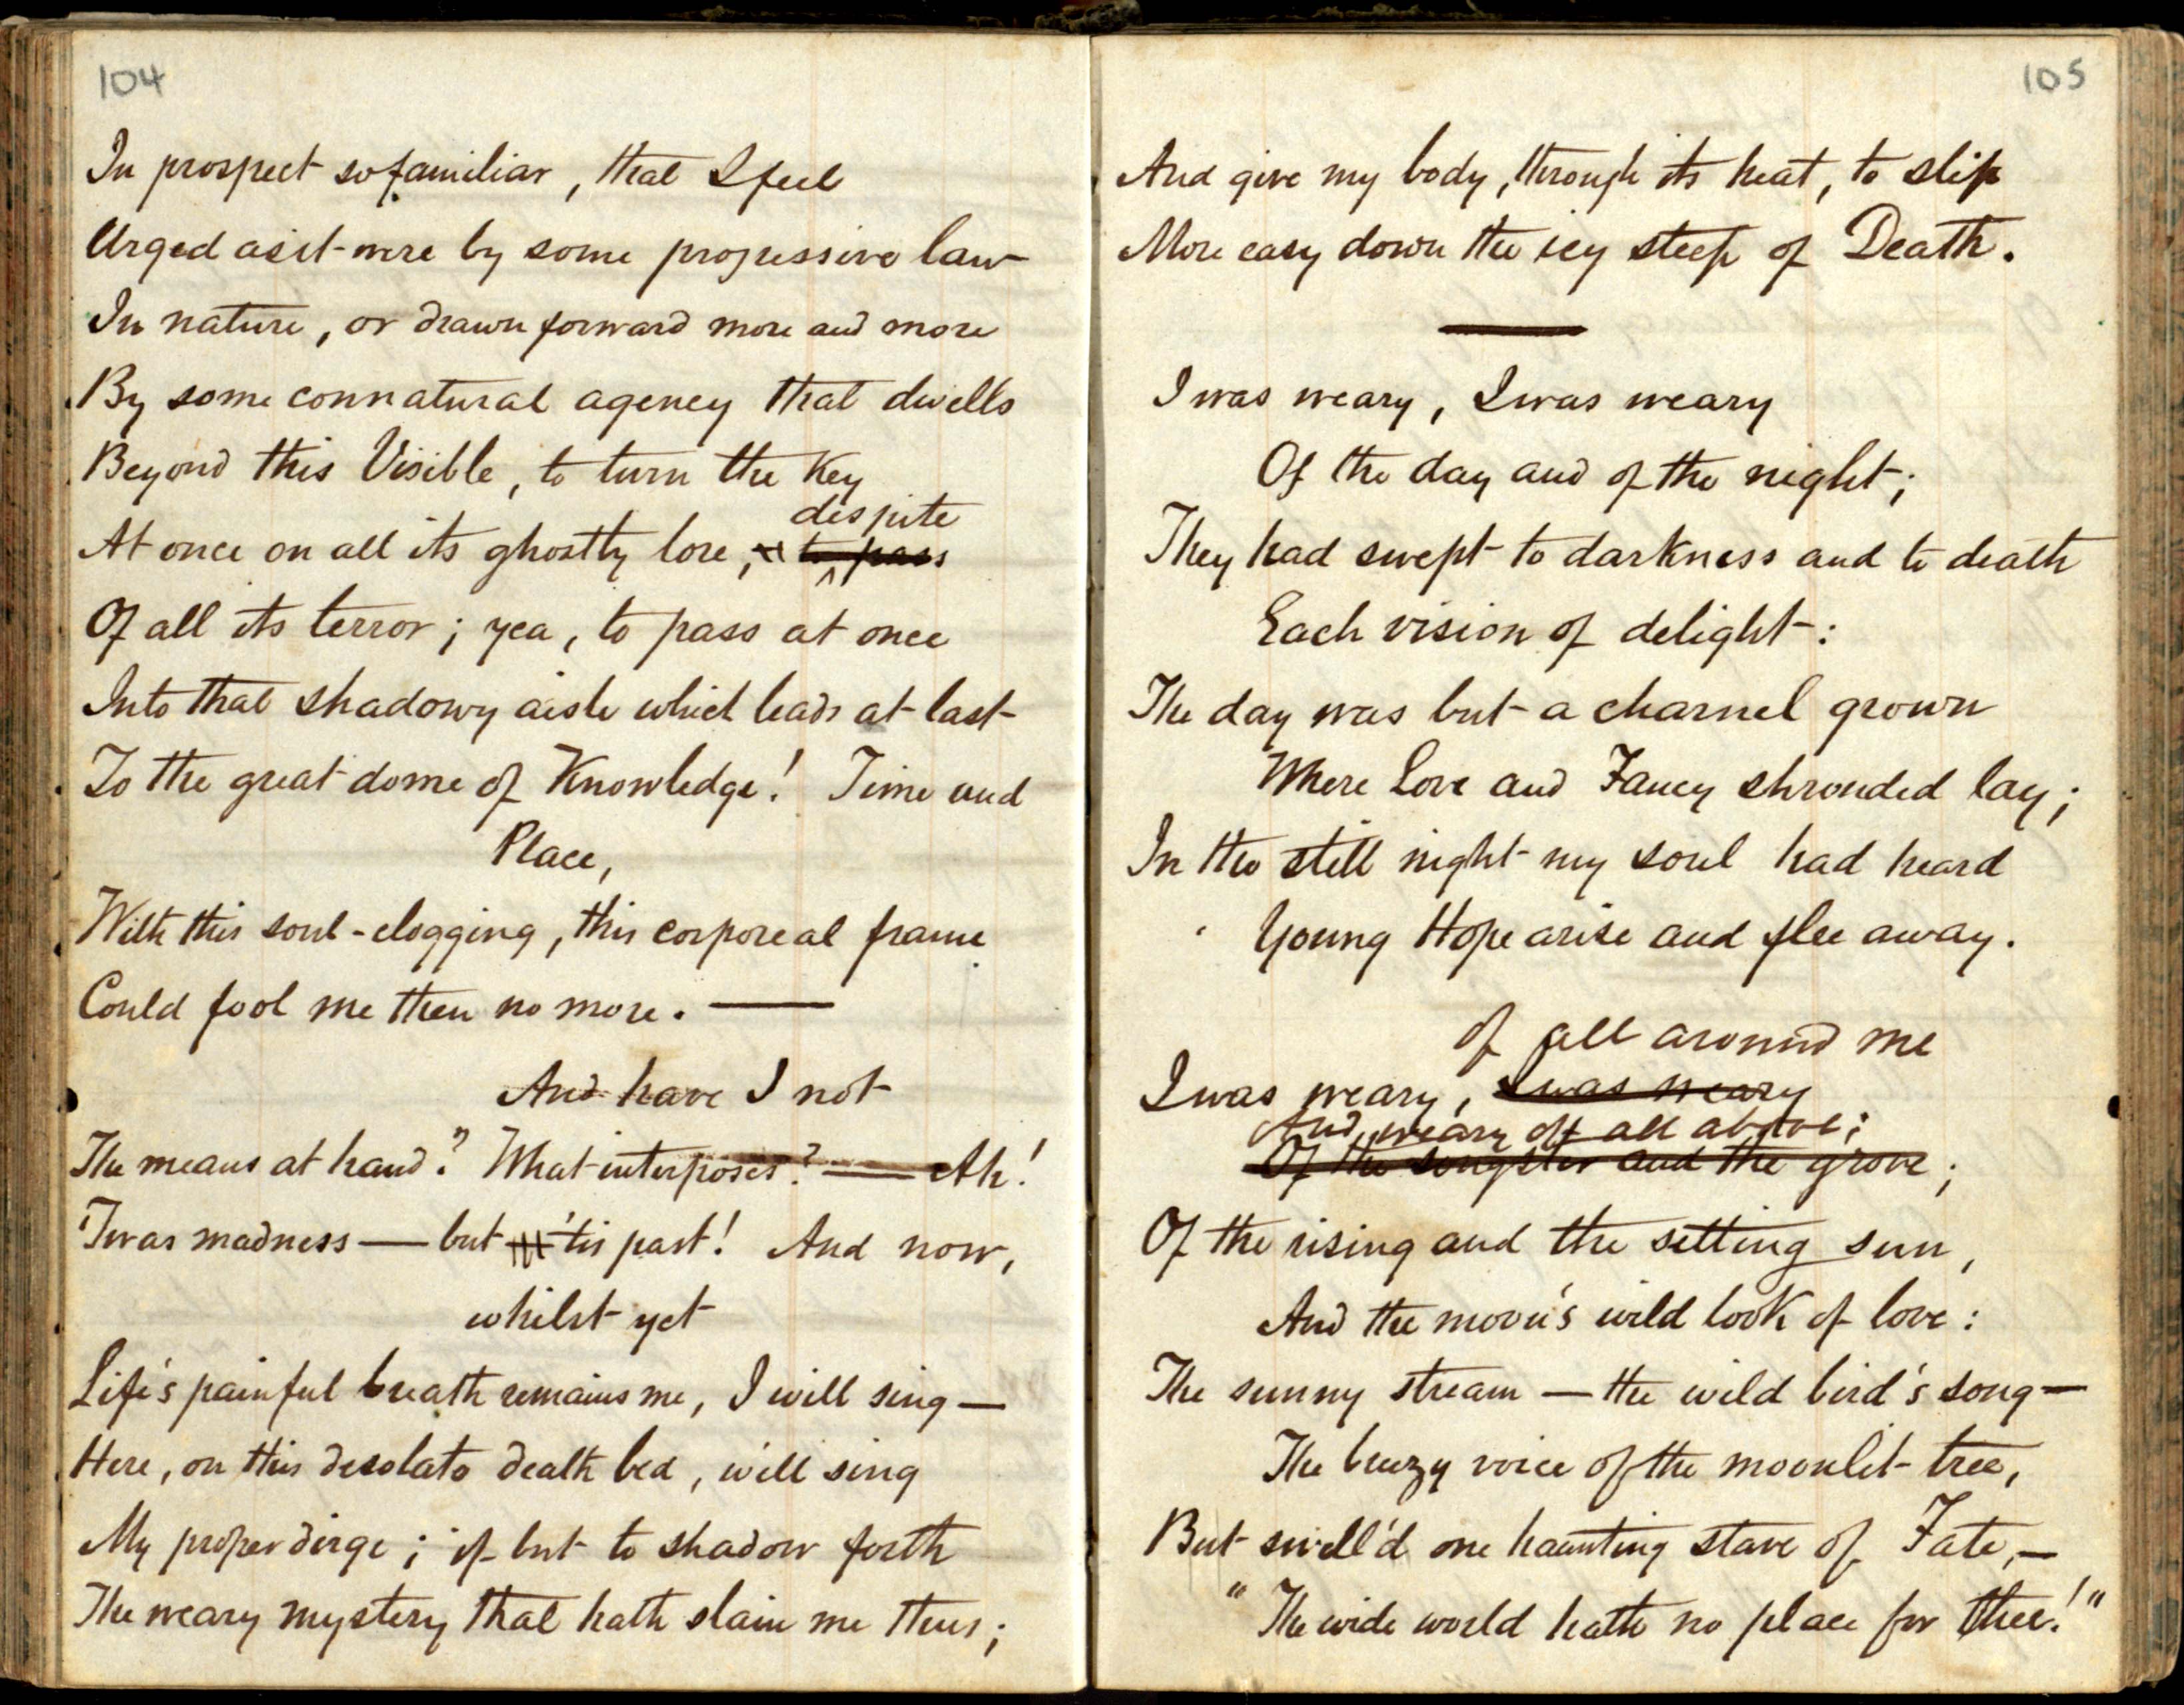 104
In prospect so familiar, that I feel
Urged as it were by some progressive law
In nature, or drawn forward more and more
By some connatural agency that dwells
Beyond this Visible, to turn the Key
despite
At once on all its ghostly lore, to pass
Of all its terror; yea, to pass at once
Into that shadowy aisle which leads at last
To the great dome of Knowledge! Time and
Place,
With this soul-clogging, this corporeal frame
Could fool me then no more. —
And have I not
The means at hand? What interposes? — Ah!
'Twas madness — but 'tis past! And now,
whilst yet
Life's painful breath remains me, I will sing —
Here, on this desolate death bed, will sing
My proper dirge; if but to shadow forth
The weary mystery that hath slain me thus;
105
And give my body, through its heat, to slip
More easy down the icy steep of Death.
I was weary, I was weary
Of the day and of the night;
They had swept to darkness and to death
Each vision of delight:
The day was but a charnel grown
Where Love and Fancy shrouded lay;
In the still night my soul had heard
Young Hope arise and flee away.
of all around me
I was weary, I was weary
And weary of all above;
Of the songster and the grove;
Of the rising and the setting sun,
And the moon's wild look of love:
The sunny stream — the wild bird's song —
The breezy voice of the moonlit tree,
But swell'd one haunting stave of Fate, —
"The wide world hath no place for thee!"